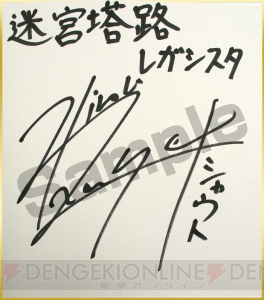 迷宮塔路
レガシスタ
Hiroki
シャウト
Sample
DENGEKIONLINE
電撃オンライン